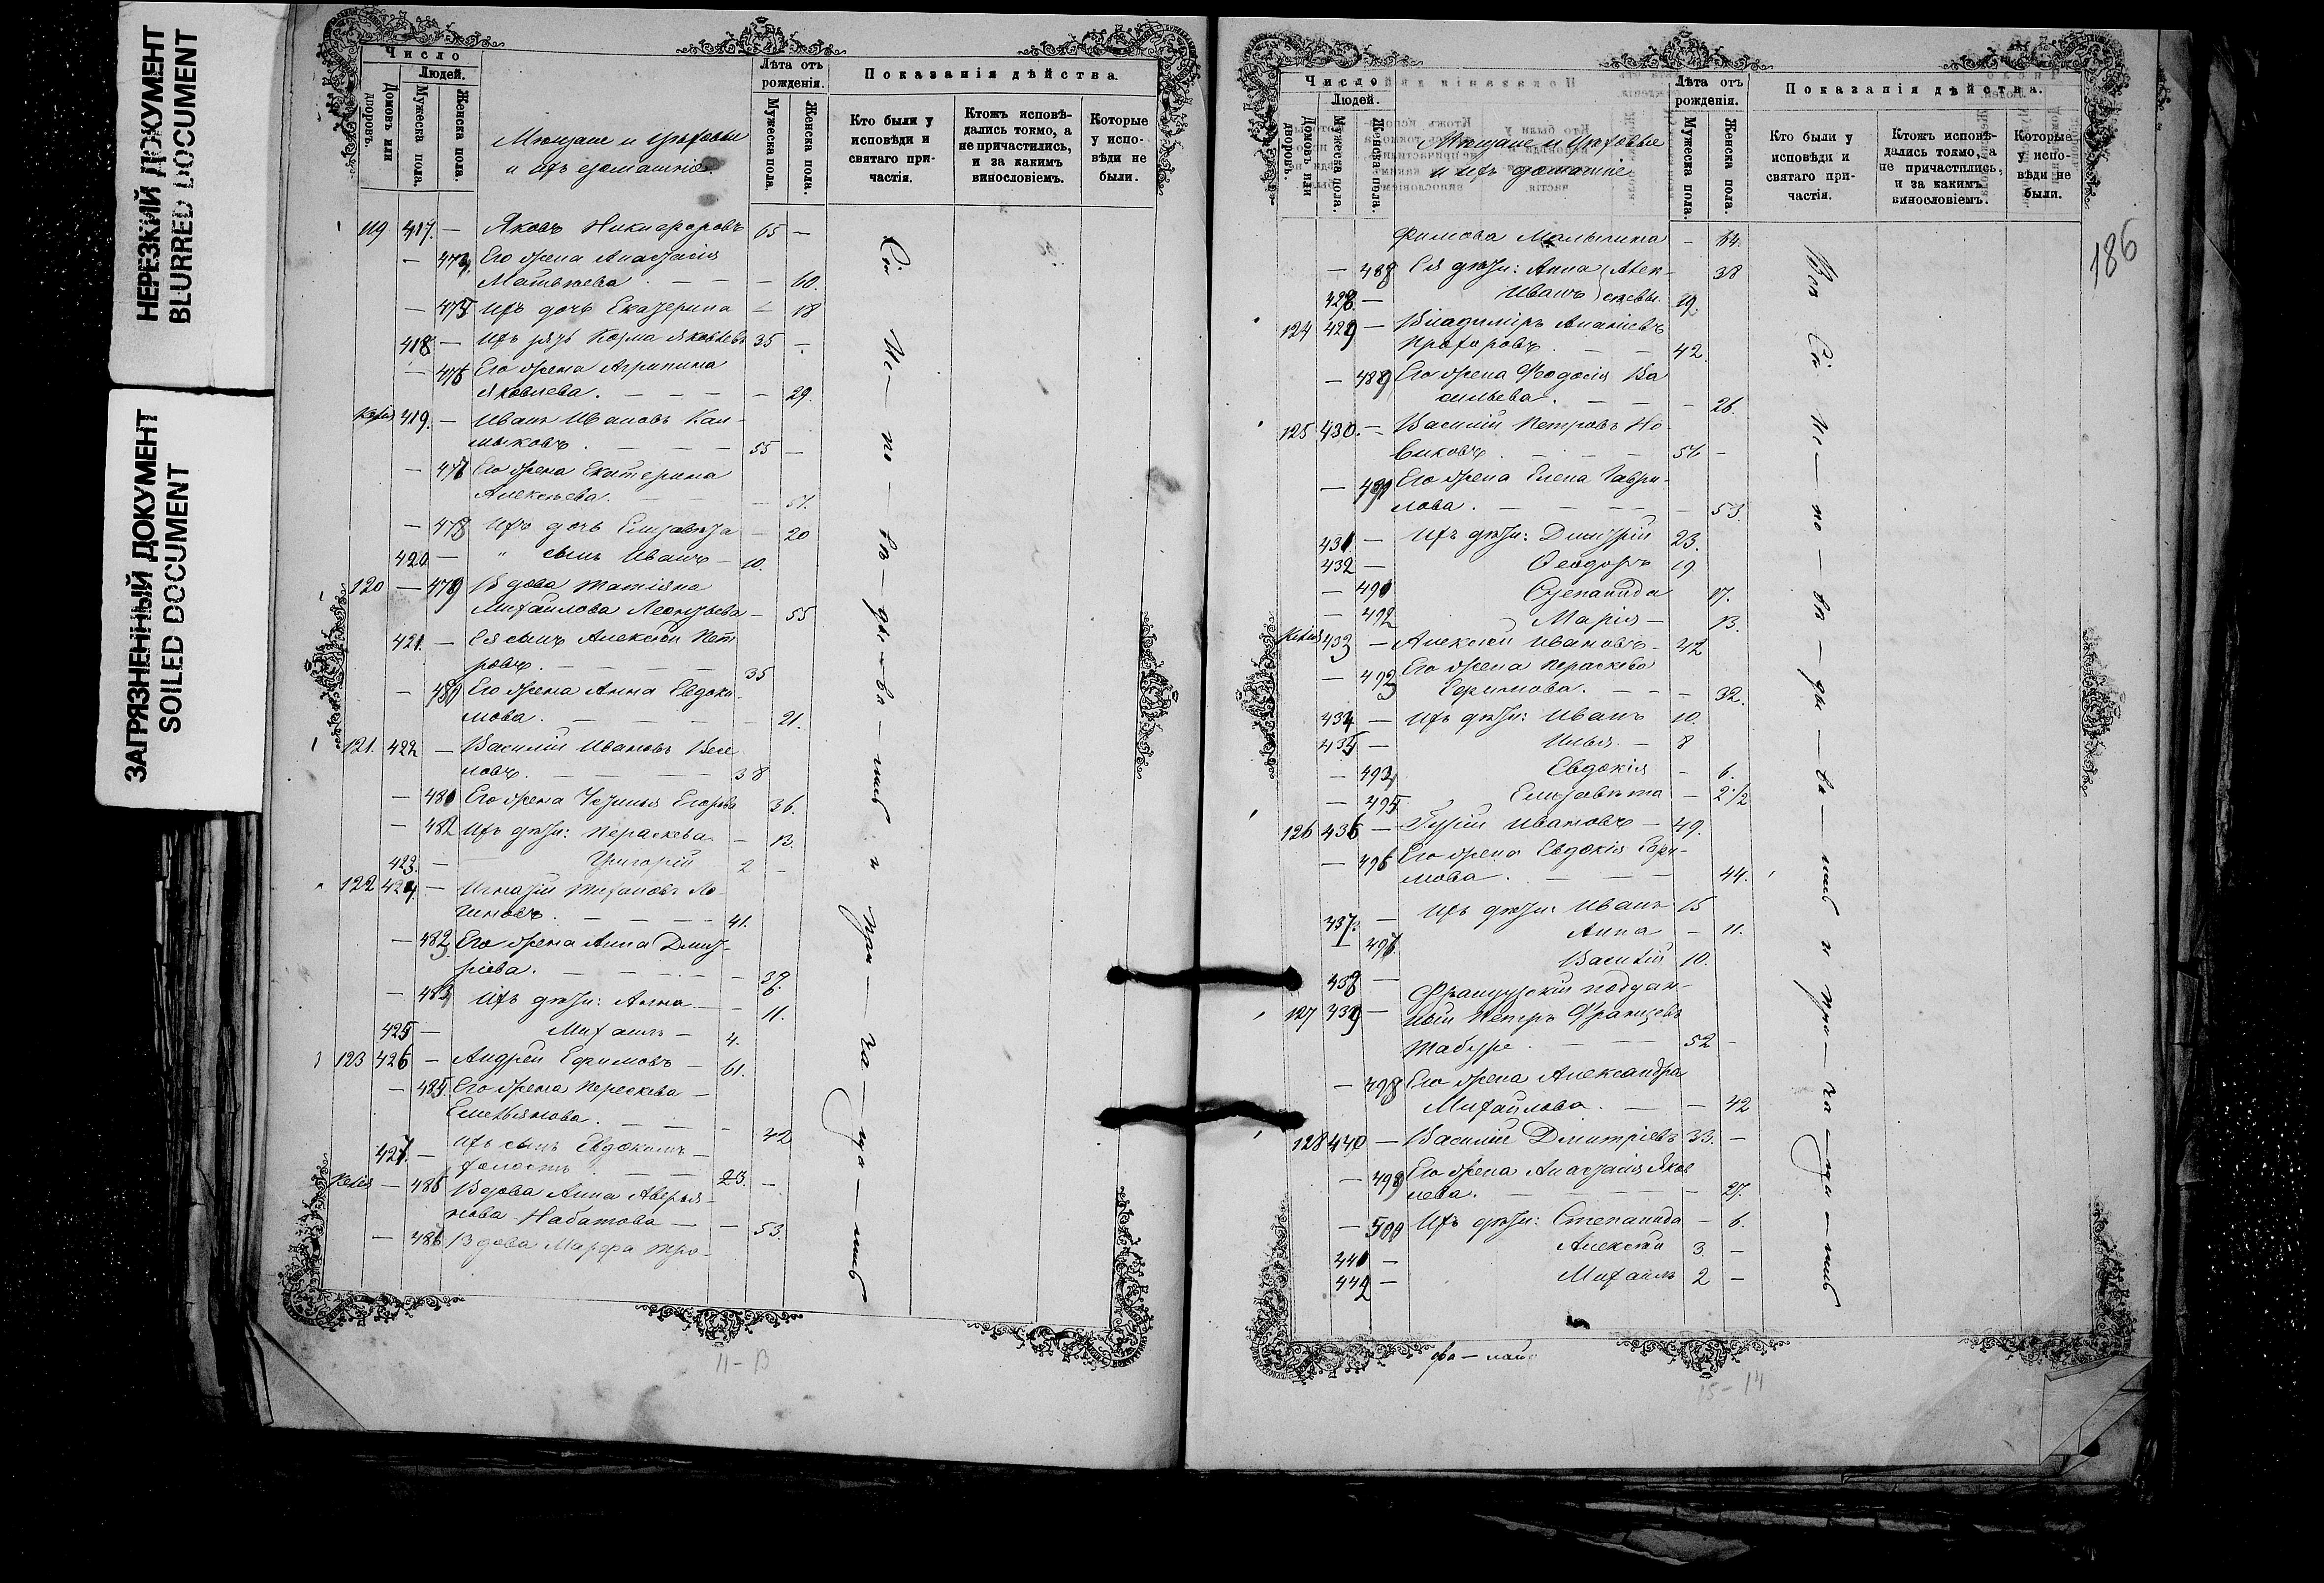 НЕРЕЗКИЙ ДОКУМЕНТ
BLURRED DOCUMENT
ЗАГРЯЗНЕННЫЙ ДОКУМЕНТ
SOILED DOCUMENT
Число
Людей.
Домовъ или дворовъ.
Мужеска пола.
Женска пола.
Мѣщане и цеховые
и ихъ домашніе.
Лѣта отъ рожденія.
Мужеска пола.
Женска пола.
Показанія дѣйства.
Кто были у исповѣди и святаго причастія.
Ктожъ исповѣдались токмо, а не причастились, и за какимъ винословіемъ.
Которые у исповѣди не были.
119 417. — Яковъ Никифоровъ 65 —
— 474 Его жена Анастасія
Матвѣева — — — 60.
— 475 Ихъ дочь Екатерина — 18
418 — Ихъ зять Козма Яковлевъ 35 —
— 476 Его жена Агрипина
Яковлева. — — — — 29.
419. — Иванъ Ивановъ Кал-
мыковъ. — — — 55 —
— 477 Его жена Екатерина
Алексѣева. — — — 51.
— 478 Ихъ дочь Елизавета — 20
420 — " сынъ Иванъ — 10.
120 — 479 Вдова Татіяна
Михайлова Леонтьева — 55
421. — Ея сынъ Алексѣй Пет
ровъ. — — — — 35
— 480 Его жена Анна Евдоки-
мова. — — — — 21.
121. 422 — Василій Ивановъ
ловъ. — — — — 38
— 481 Его жена Егорова 36.
— 482 Ихъ дѣти: Параскева — 13.
423. — Григорій 2 —
122 424. — Игнатій Ло-
гиновъ. — — — — 41.
— 483 Его жена Анна Дмит-
ріева. — — — —
— Ихъ дѣти: Анна — — 11.
425 — Михаилъ — 4.
123 426 — Андрей Ефимовъ — 61.
— 485. Его жена Параскева —
Емельянова. — — — 42
427. — Ихъ сынъ Евдокимъ —
холостъ. — — 23. —
— 486 Вдова Анна Аверья-
нова Набатова — — 53.
— 486 Вдова Марфа Тро-
Сіи Ис — по — вѣ — ды — ва — лись и При — ча — ща — лись
11 - 13
Число
Людей.
Домовъ или дворовъ.
Мужеска пола.
Женска пола.
Мѣщане и цеховые
и ихъ домашніе
Лѣта отъ рожденія.
Мужеска пола.
Женска пола.
Показанія дѣйства.
Кто были у исповѣди и святаго причастія.
Ктожъ исповѣдались токмо, а не причастились, и за какимъ винословіемъ.
Которые у исповѣди не были.
186
фимова Малыгина — 64.
— 488 Ея дѣти: Анна Алек- 38
428 — Иванъ сѣевы. 19.
124 429 — Владиміръ Ананіевъ
Прохоровъ. — — 42.
— 489 Его жена Ѳеодосія Ва
сильева. — — — 26.
125 430. — Василій Петровъ Но-
виковъ. — — — 56 —
— Его жена Елена Гаври-
лова. — — — — 53.
431. — Ихъ дѣти: Дмитрій 23.
432 — Ѳеодоръ 19
— 491 Степанида 17.
— 492 Марія — 13.
433 — Алексѣй Ивановъ. 42
— 493 Его жена Параскева
Ефимова. — — — 32.
434 — Ихъ дѣти: Иванъ 10.
435 — Илья. — 8
— 494 Евдокія — 6.
— 495 Елизавета — 2 1/2
126 436 — Гурій Ивановъ — 49.
— 496 Его жена Евдокія Ефи-
мова. — — — 44.
437. — Ихъ дѣти: Иванъ 15
— 497 Анна — 11.
438 — Василій 10.
127 439 — Французскій поддан-
ный Петръ Францевъ
Табуре. — — 52 —
— 498 Его жена Александра
Михайлова. — — 42
128 440 — Василій Дмитріевъ 33. —
— 499 Его жена Анастасія Яков
лева. — — — — 27.
— 500 Ихъ дѣти: Степанида — 6.
441 — Алексѣй 3 —
442 — Михаилъ 2 —
Вси Сіи Ис — по — вѣ — ды — ва — лись и При — ча — ща — лись
15 - 14